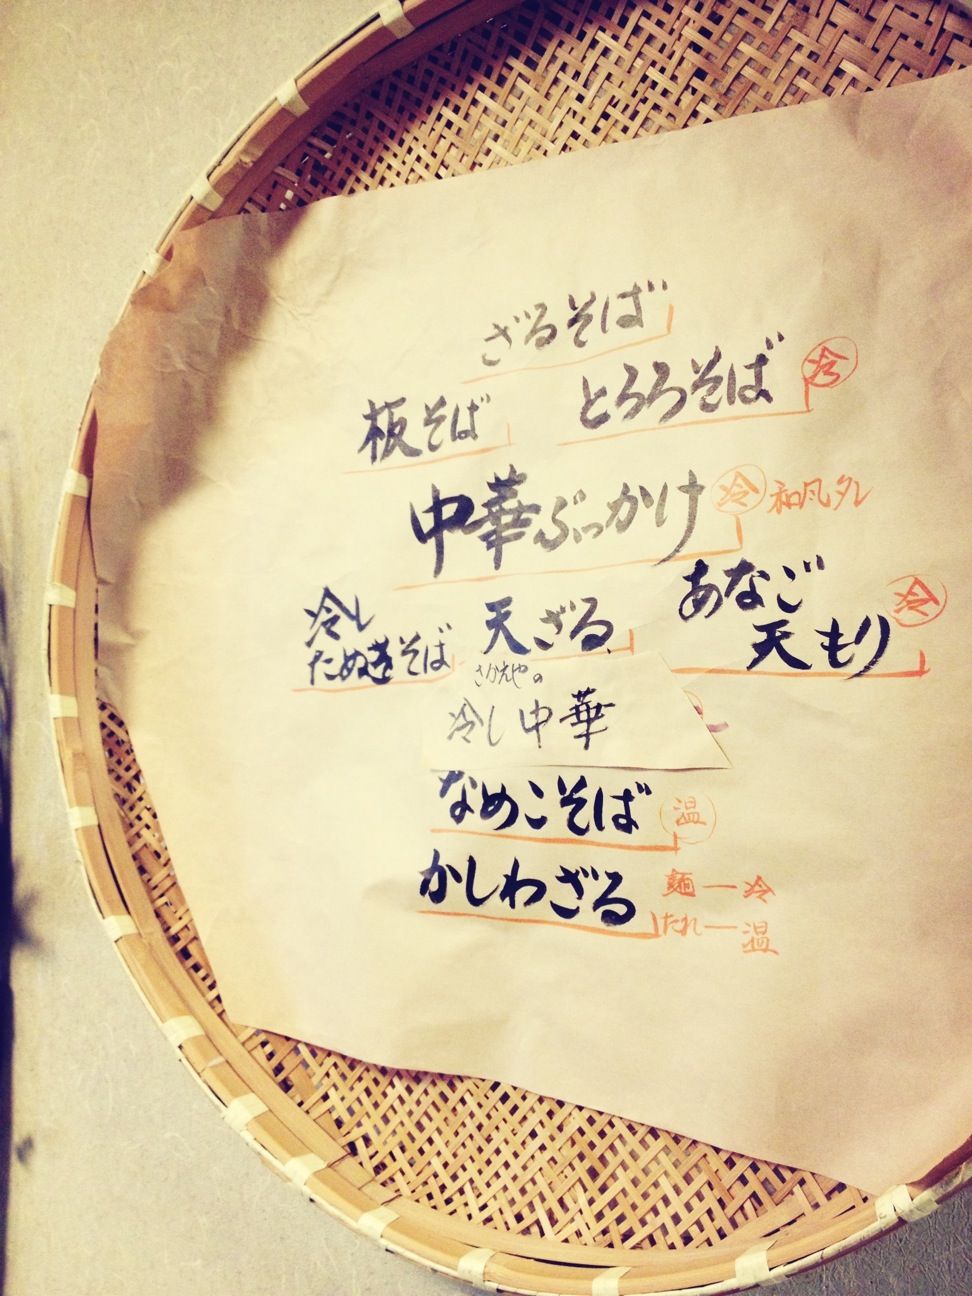 ざるそば
板そば
とろろそば 冷
中華ぶっかけ 冷 和風タレ
冷し
たぬきそば
天ざる
あなご
天もり 冷
さかえやの
冷し中華
なめこそば 温
かしわざる 麺ー冷
たれー温